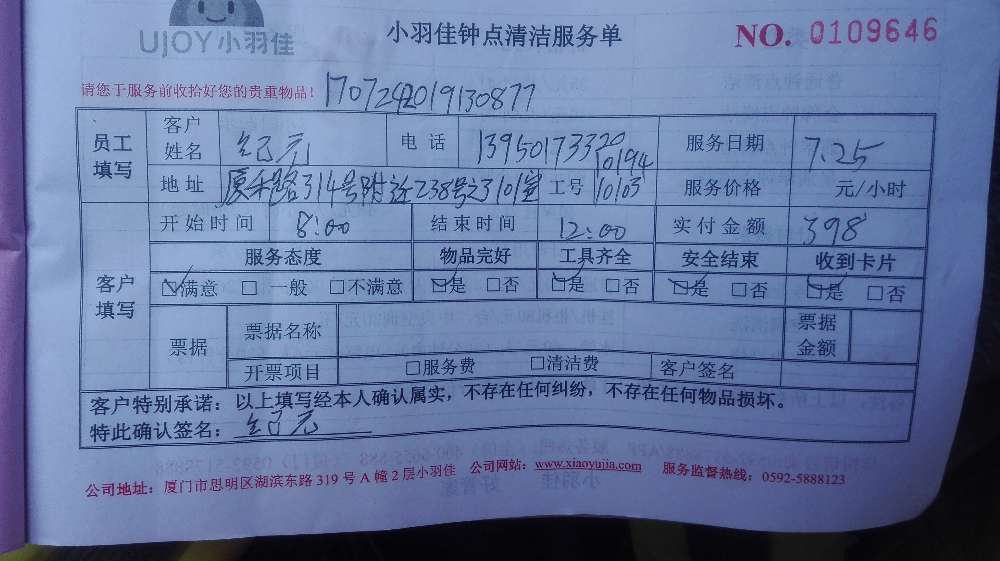 UJOY小羽佳 小羽佳钟点清洁服务单 NO. 0109646
请您于服务前收拾好您的贵重物品！ 1707242019130877
员工填写 客户姓名 纪元 电话 13950173320 服务日期 7.25
地址 厦禾路314号附近238号之101室 工号 10194 10103 服务价格 元/小时
客户填写 开始时间 8:00 结束时间 12:00 实付金额 398
服务态度 物品完好 工具齐全 安全结束 收到卡片
☑满意 □一般 □不满意 ☑是 □否 ☑是 □否 ☑是 □否 ☑是 □否
票据 票据名称 票据金额
开票项目 □服务费 □清洁费 客户签名
客户特别承诺：以上填写经本人确认属实，不存在任何纠纷，不存在任何物品损坏。
特此确认签名：纪元
公司地址：厦门市思明区湖滨东路319号A幢2层小羽佳 公司网站：www.xiaoyujia.com 服务监督热线：0592-5888123